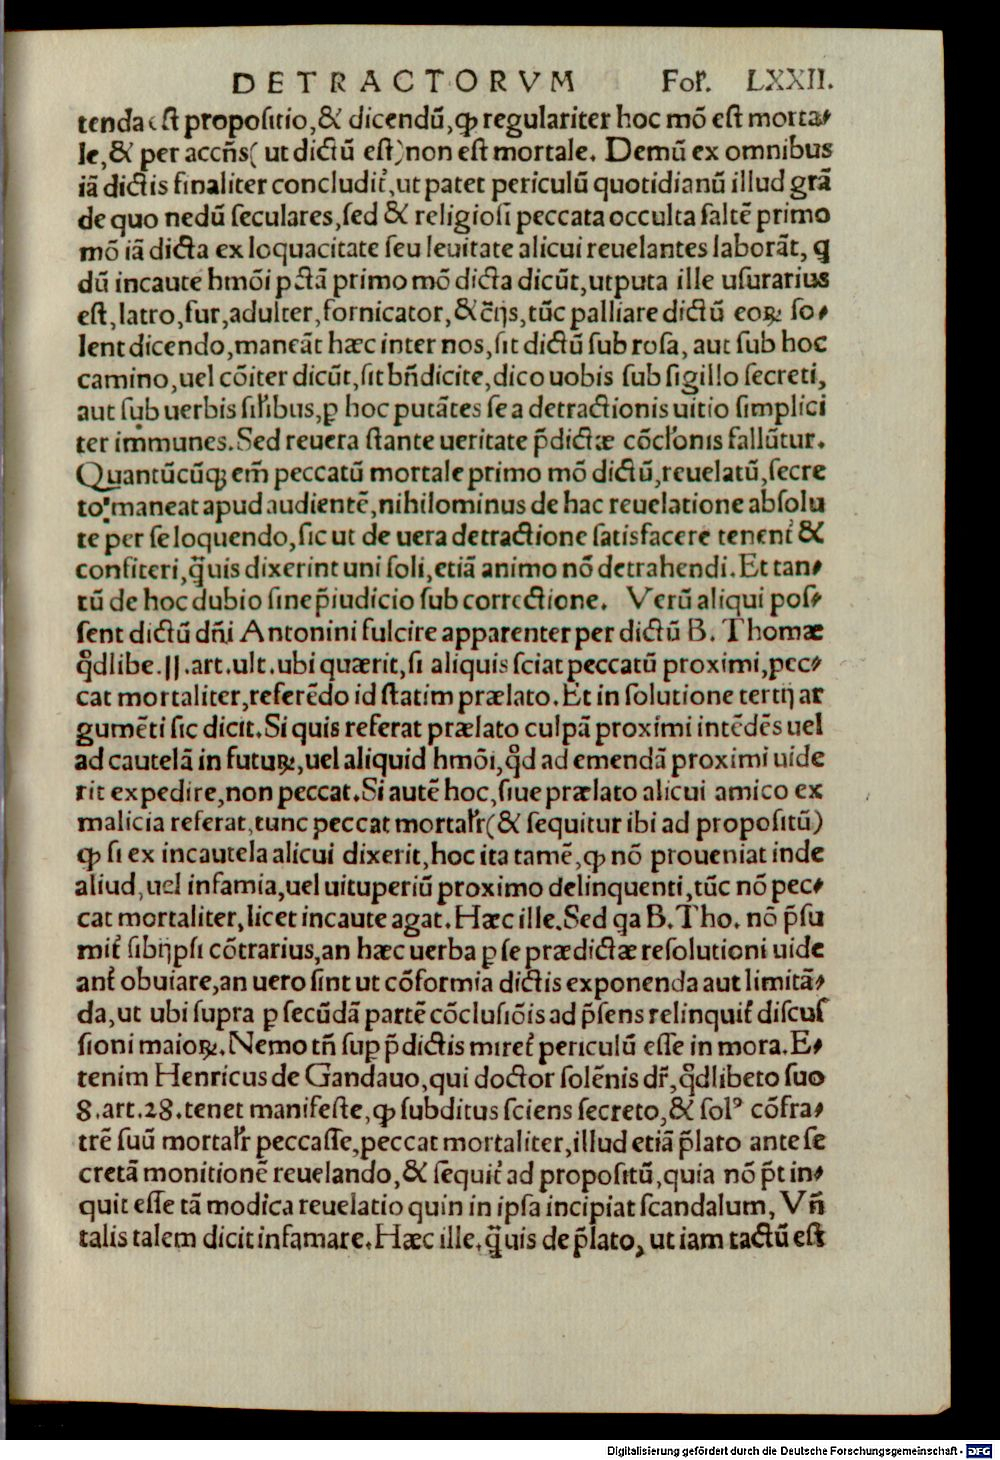 DETRACTORVM Fol'. LXXII.
tenda est propositio,& dicendũ,ꝙ regulariter hoc mõ est morta⸗
le,& per accñs( ut dictũ est)non est mortale. Demũ ex omnibus
iã dictis finaliter concludit᷑,ut patet periculũ quotidianũ illud grã
de quo nedũ seculares,sed & religiosi peccata occulta saltẽ primo
mõ iã dicta ex loquacitate seu leuitate alicui reuelantes laborãt, q̃
dũ incaute hmõi pctã primo mõ dicta dicũt,utputa ille usurarius
est,latro,fur,adulter,fornicator,&c̃ijs,tũc palliare dictũ eoꝝ so⸗
lent dicendo,maneãt hæc inter nos,sit dictũ sub rosa, aut sub hoc
camino,uel cõiter dicũt,sit bñdicite,dico uobis sub sigillo secreti,
aut sub uerbis sil'ibus,ꝑ hoc putãtes se a detractionis uitio simplici
ter immunes.Sed reuera stante ueritate p̃dictæ cõcl'onis fallũtur.
Quantũcũꝗ em̃ peccatũ mortale primo mõ dictũ,reuelatũ,secre
to maneat apud audientẽ,nihilominus de hac reuelatione absolu
te per se loquendo,sic ut de uera detractione satisfacere tenent᷑ &
confiteri,q̃uis dixerint uni soli,etiã animo nõ detrahendi.Et tan⸗
tũ de hoc dubio sine p̃iudicio sub correctione. Verũ aliqui pos⸗
sent dictũ dñi Antonini fulcire apparenter per dictũ B. Thomæ
q̃dlibe.11.art.ult.ubi quærit,si aliquis sciat peccatũ proximi,pec⸗
cat mortaliter,referẽdo id statim prælato.Et in solutione tertij ar
gumẽti sic dicit.Si quis referat prælato culpã proximi intẽdẽs uel
ad cautelã in futuꝝ,uel aliquid hmõi,q̃d ad emendã proximi uide
rit expedire,non peccat.Si autẽ hoc,siue prælato alicui amico ex
malicia referat,tunc peccat mortal'r(& sequitur ibi ad propositũ)
ꝙ si ex incautela alicui dixerit,hoc ita tamẽ,ꝙ nõ proueniat inde
aliud,uel infamia,uel uituperiũ proximo delinquenti,tũc nõ pec⸗
cat mortaliter,licet incaute agat.Hæc ille.Sed qa B.Tho. nõ p̃su
mit᷑ sibijpsi cõtrarius,an hæc uerba ꝑ se prædictæ resolutioni uide
ant᷑ obuiare,an uero sint ut cõformia dictis exponenda aut limitã⸗
da,ut ubi supra ꝑ secũdã partẽ cõclusiõis ad p̃sens relinquit᷑ discus
sioni maioꝝ.Nemo tñ sup p̃dictis miret᷑ periculũ esse in mora.E⸗
tenim Henricus de Gandauo,qui doctor solẽnis dr̃,q̃dlibeto suo
8.art.28.tenet manifeste,ꝙ subditus sciens secreto,& solꝰ cõfra⸗
trẽ suũ mortal'r peccasse,peccat mortaliter,illud etiã p̃lato ante se
cretã monitionẽ reuelando,& sequit᷑ ad propositũ,quia nõ p̃t in⸗
quit esse tã modica reuelatio quin in ipsa incipiat scandalum, Vñ
talis talem dicit infamare.Hæc ille.q̃uis de p̃lato, ut iam tactũ est
Digitalisierung gefördert durch die Deutsche Forschungsgemeinschaft - DFG